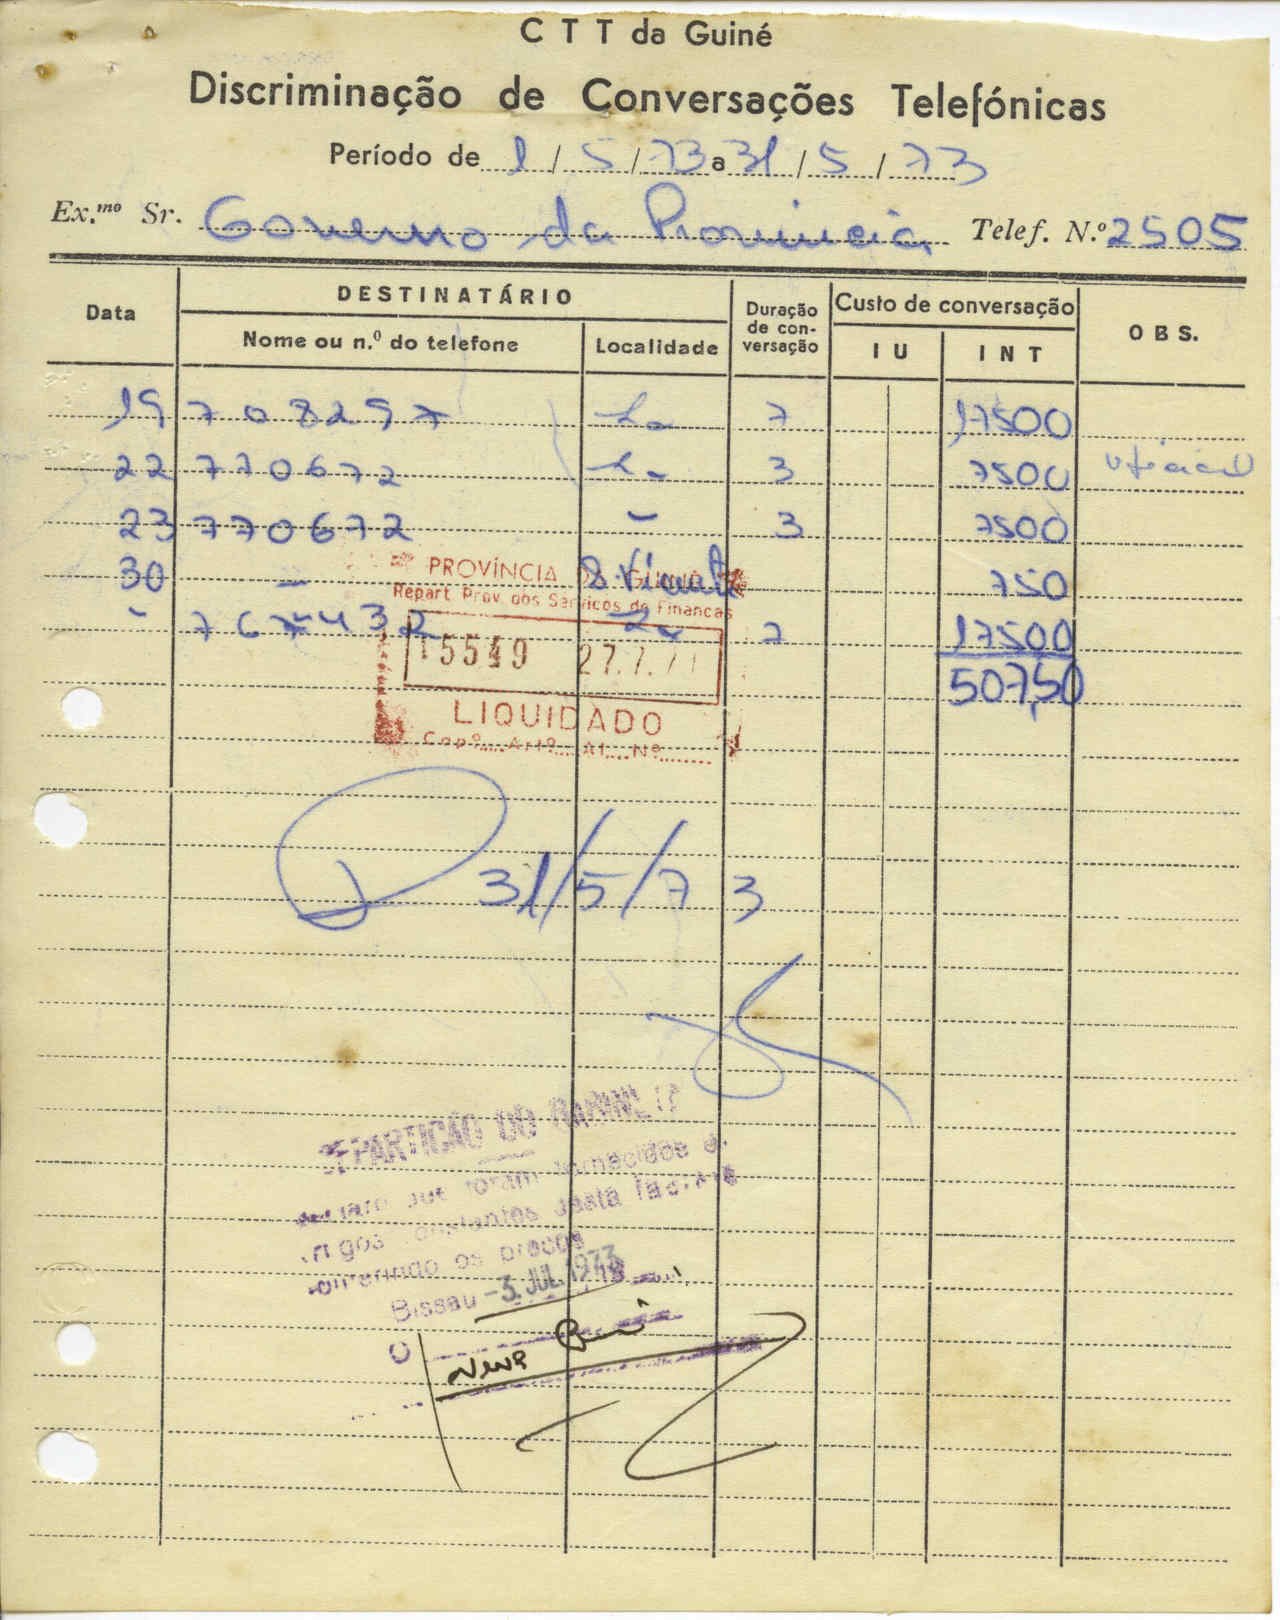 C T T da Guiné
Discriminação de Conversações Telefónicas
Período de 1 / 5 / 73 a 31 / 5 / 73
Ex.mo Sr. Governo da Provincia Telef. N.º 2505
Data DESTINATÁRIO Duração de con-versação Custo de conversação OBS.
Nome ou n.º do telefone Localidade IU INT
19 708297 Lx 7 17500
22 770672 Lx 3 7500 oficial
23 770672 " 3 7500
30 — 750
PROVÍNCIA DA GUINÉ
Repart. Prov. dos Serviços de Finanças
" 767432 Lx 7 17500
15549 27.7.
507,50
LIQUIDADO
Capº.... Artº.... Al.... Nº........
31/5/73
REPARTIÇÃO DO GABINETE
que foram fornecidos
constantes desta factura
os preços
Bissau -3. JUL. 1973
O